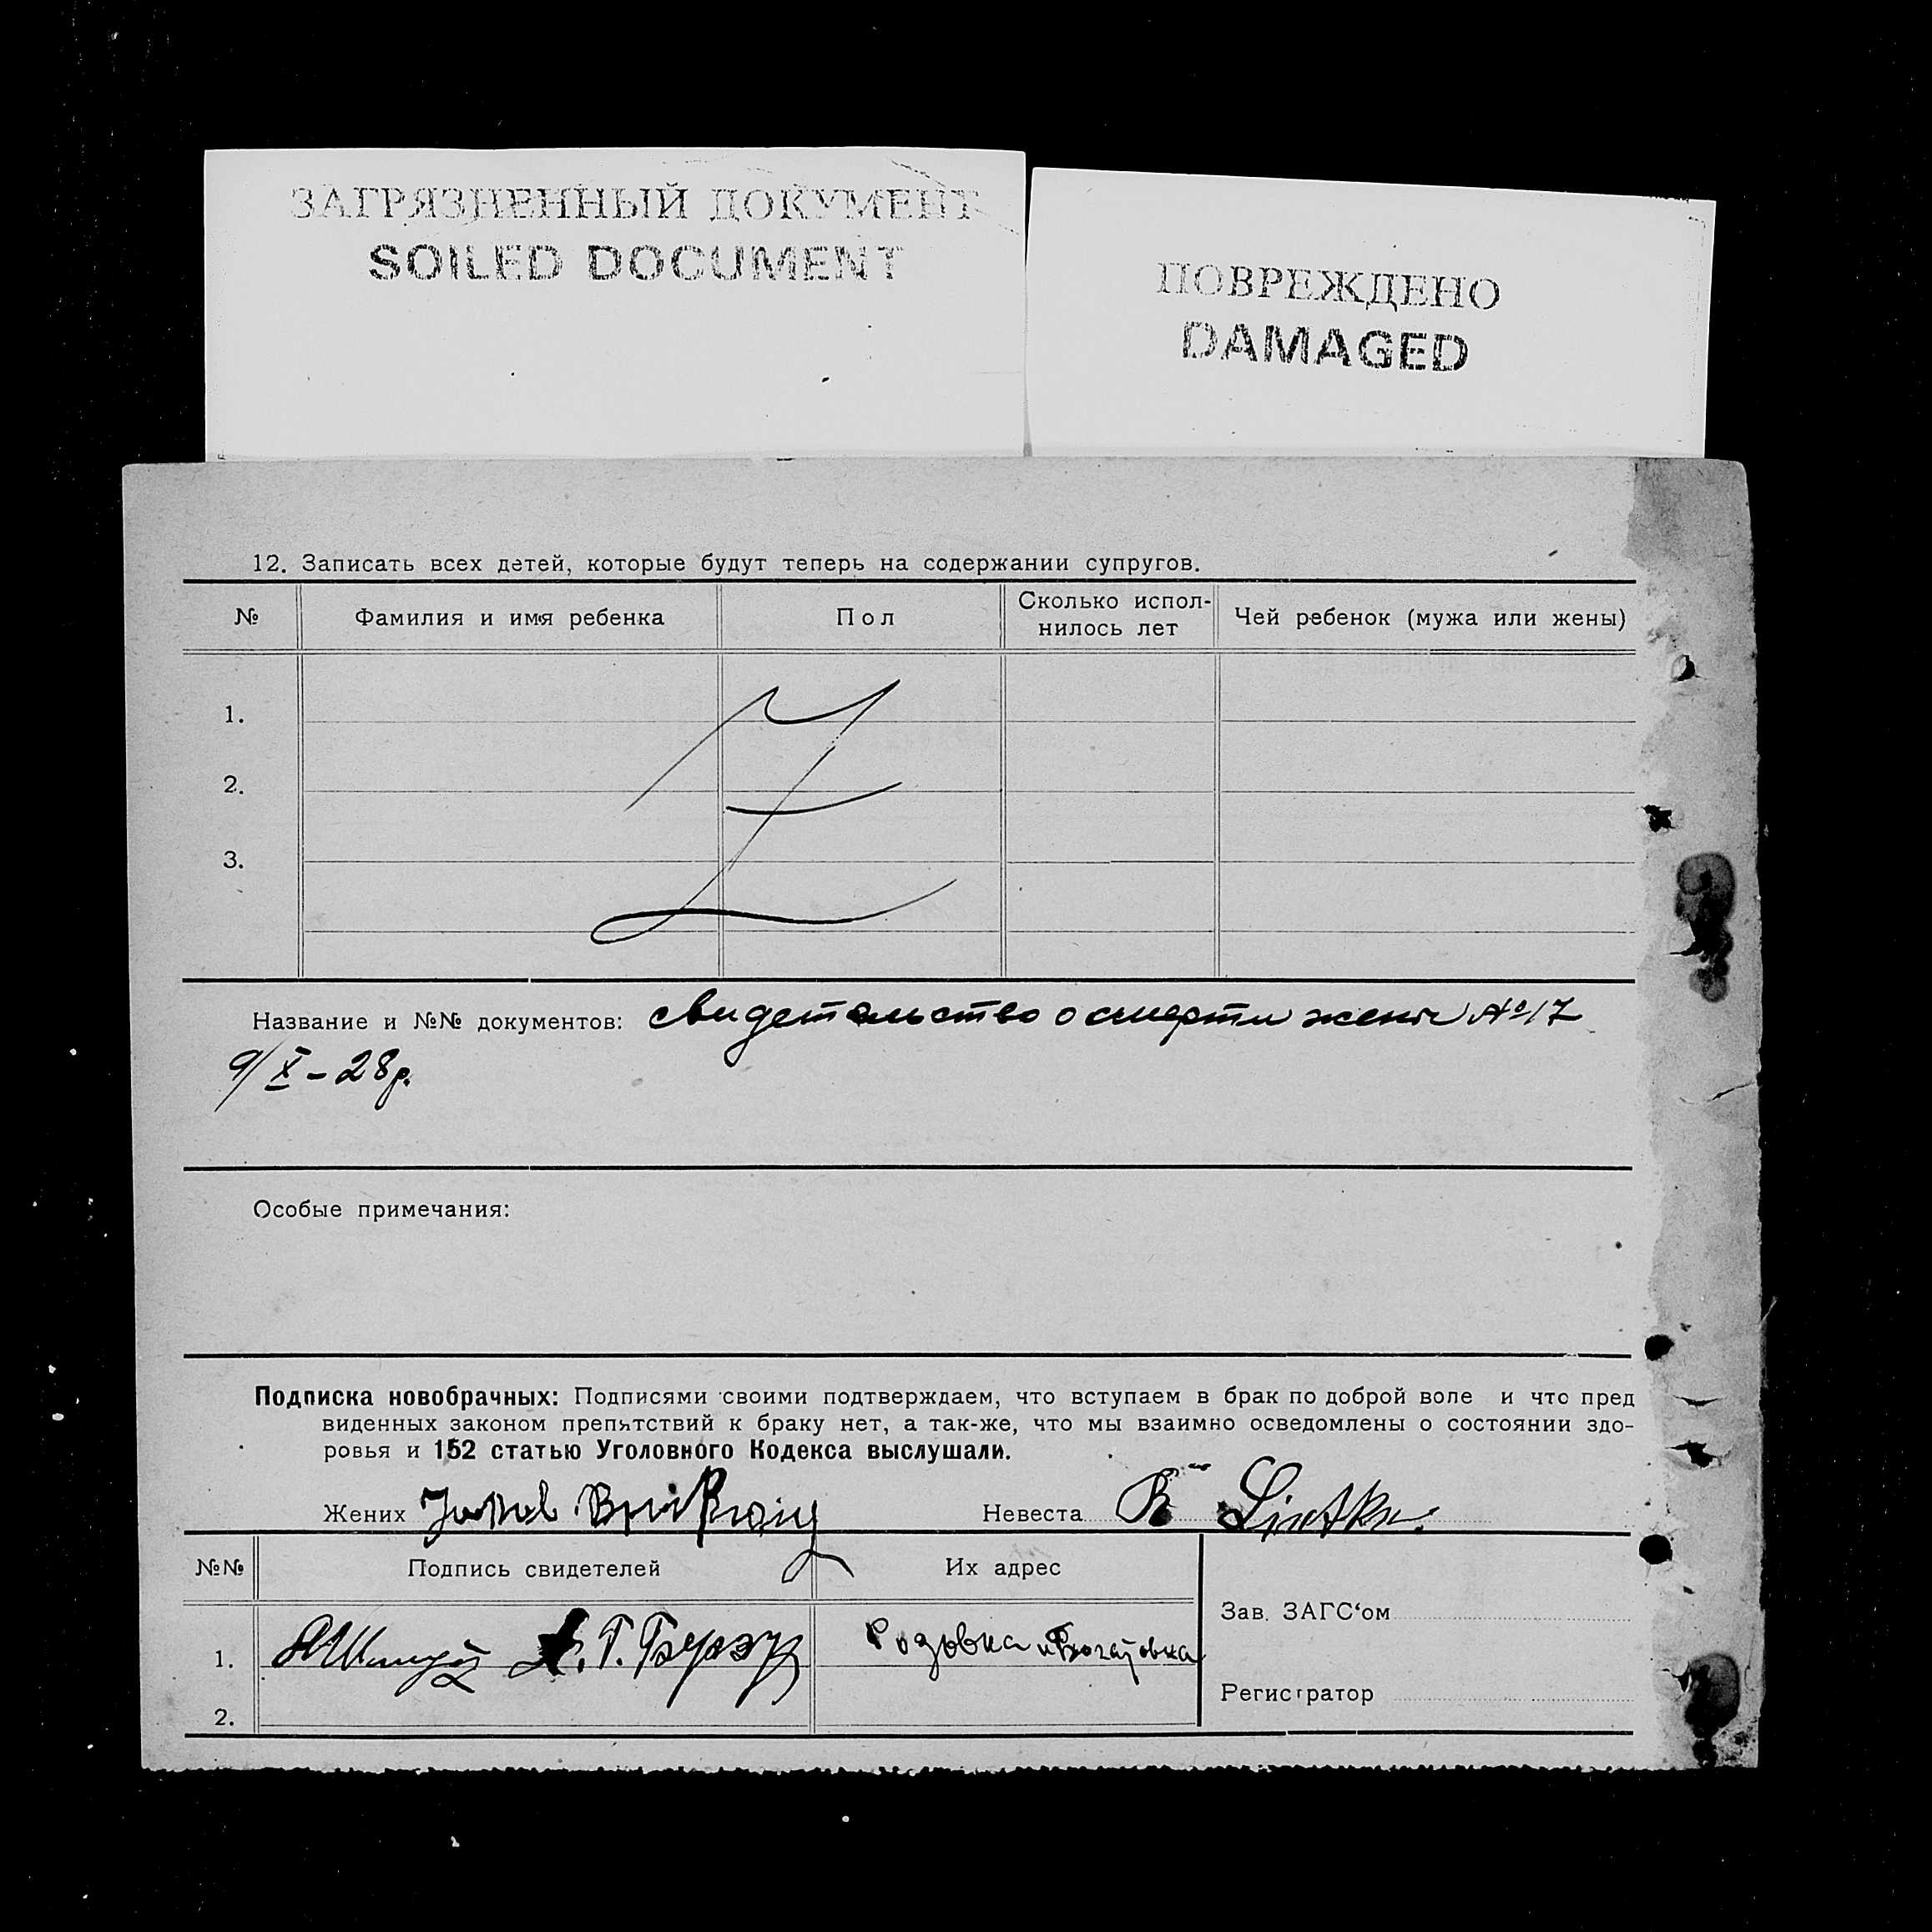 ЗАГРЯЗНЕННЫЙ ДОКУМЕНТ
SOILED DOCUMENT
ПОВРЕЖДЕНО
DAMAGED
12. Записать всех детей, которые будут теперь на содержании супругов.
№ Фамилия и имя ребенка Пол Сколько испол-нилось лет Чей ребенок (мужа или жены)
1.
2.
3.
Название и №№ документов: свидетельство о смерти жены № 17
9/X – 28 р.
Особые примечания:
Подписка новобрачных: Подписями своими подтверждаем, что вступаем в брак по доброй воле и что пред
виденных законом препятствий к браку нет, а так-же, что мы взаимно осведомлены о состоянии здо-
ровья и 152 статью Уголовного Кодекса выслушали.
Жених Невеста
№№ Подпись свидетелей Их адрес
Зав. ЗАГС‘ом
1. Розовка и Богатовка
Регистратор
2.